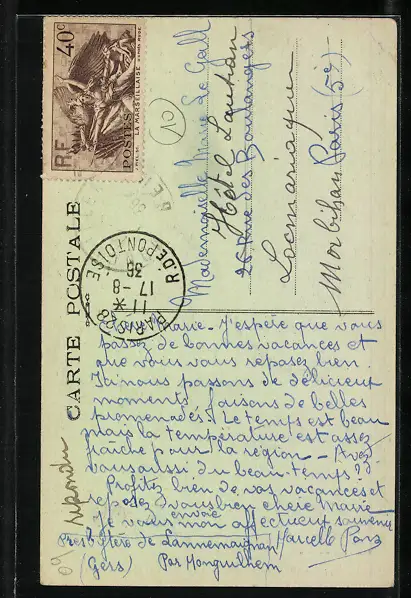 40c
RF
POSTES
LA MARSEILLAISE
CARTE POSTALE
PARIS 28
R. DE PONTOISE
11 *
17-8
36
Mademoiselle Marie Le Gall
26 Rue des Boulangers
Paris (5e)
Hôtel Lautram
Locmariaquer
Morbihan
Marie. J'espère que vous
passez de bonnes vacances et
que vous vous reposez bien.
Ici nous passons de délicieux
moments, faisons de belles
promenades. Le temps est beau
mais la température est assez
fraîche pour la région - Avez
vous aussi du beau temps ?
Profitez bien de vos vacances et
reposez vous bien chère Marie
Je vous envoie mon affectueux souvenir
Marcelle
Presbytère de Lannemaignan
(Gers) Par Monguilhem
répondu